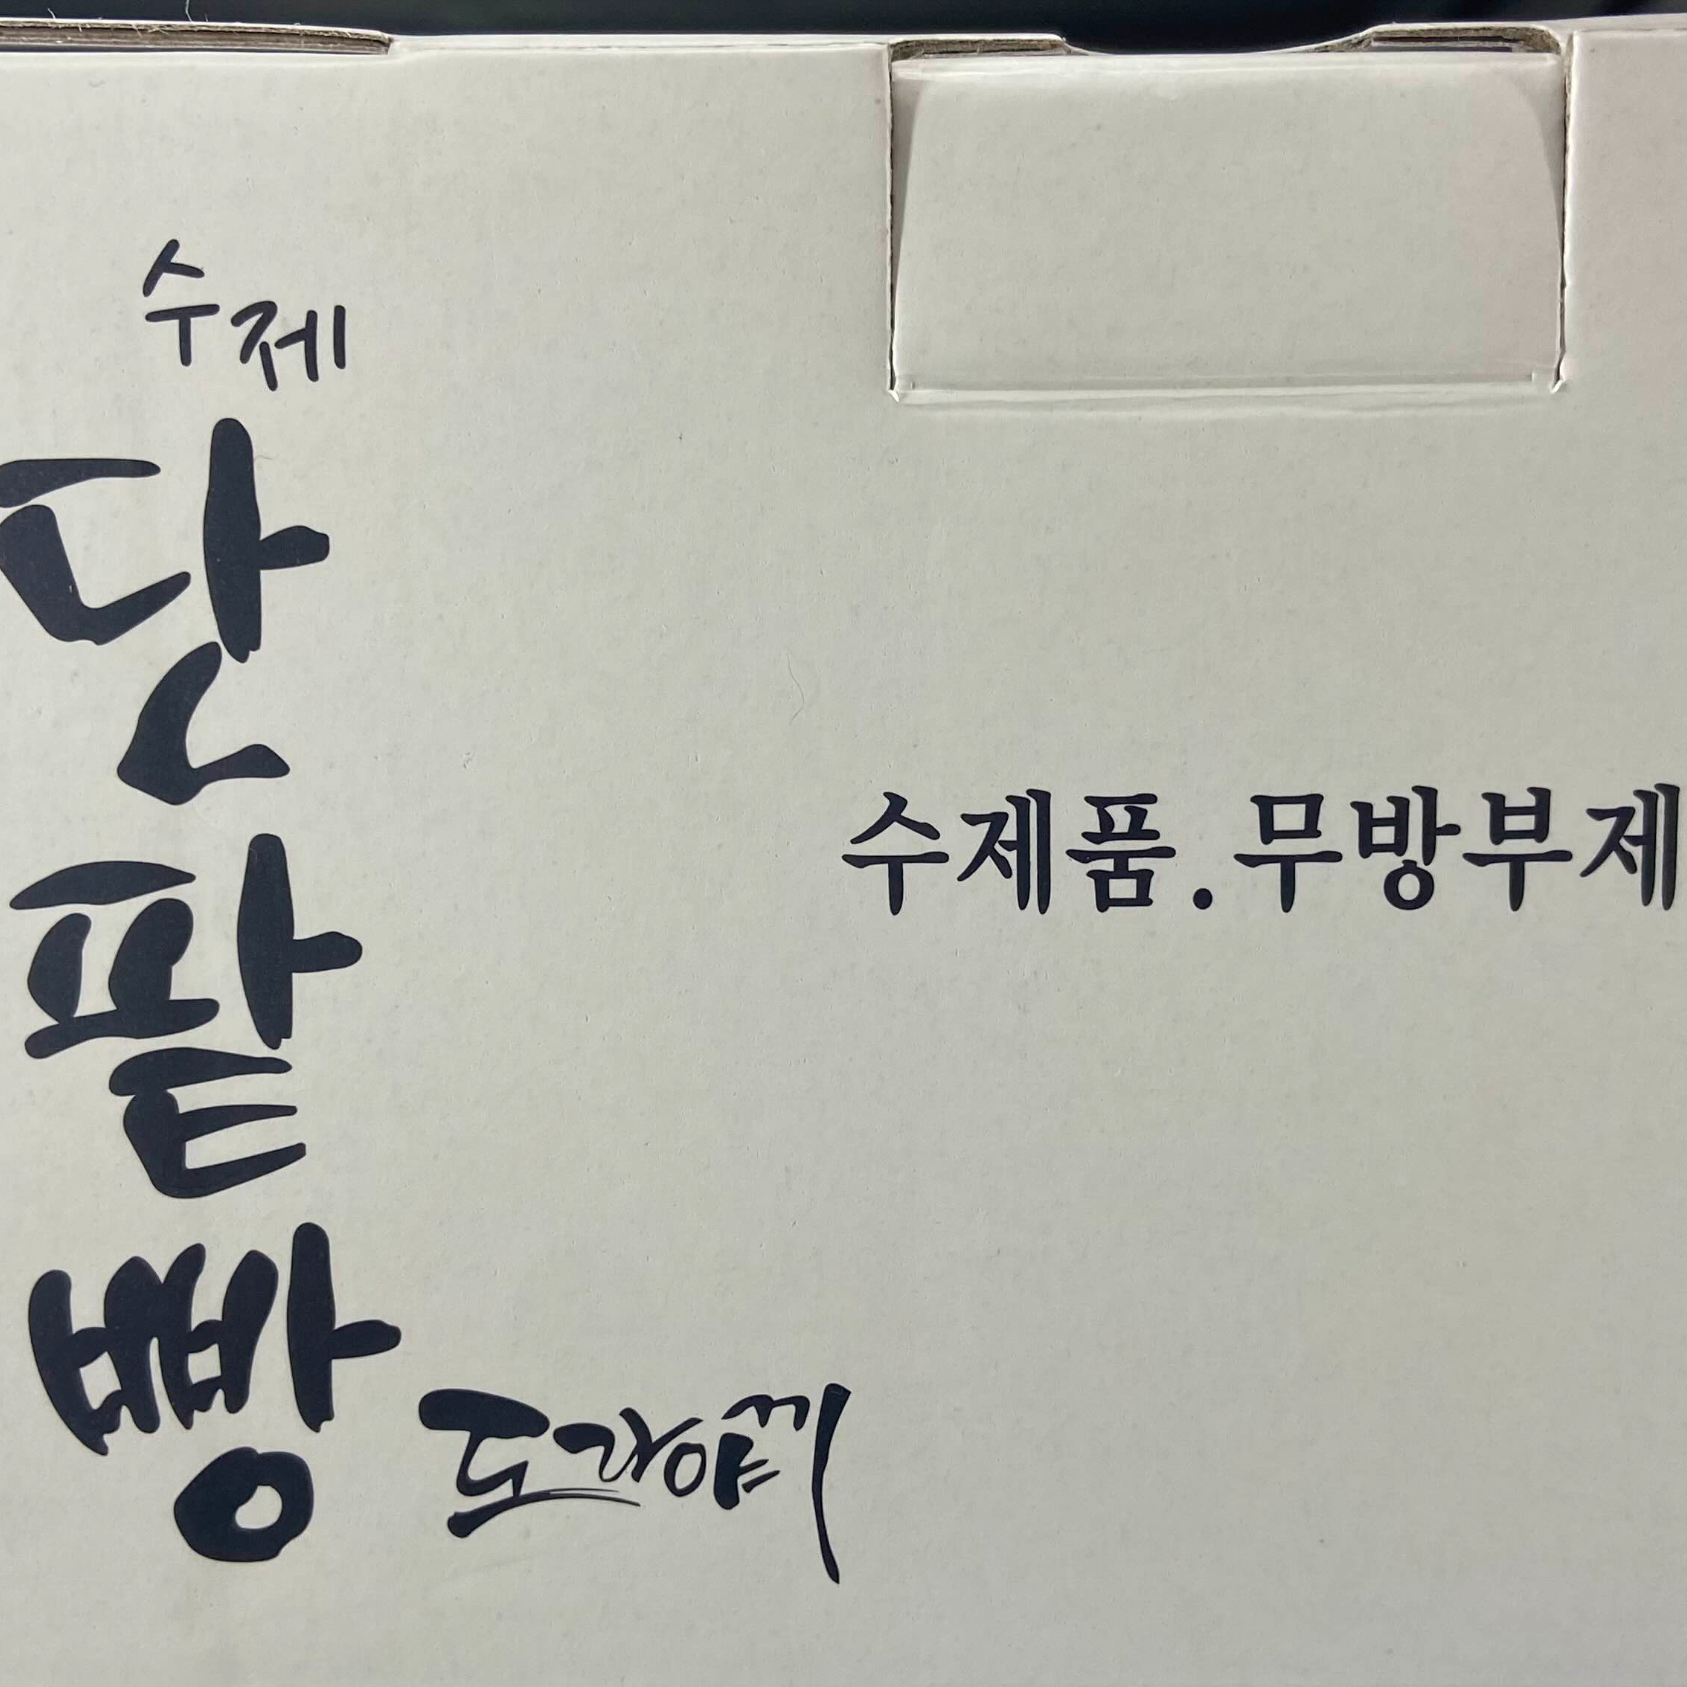 수제
단팥빵
도라야끼
수제품.무방부제